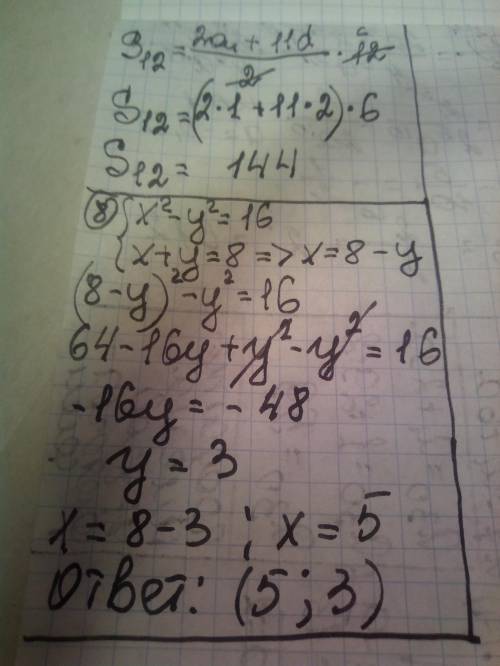 S₁₂ = (2a₁ + 11d)/2 · 12 6
S₁₂ = (2·1 + 11·2)·6
S₁₂ = 144
⑧ { x² - y² = 16
{ x + y = 8 => x = 8 - y
(8 - y)² - y² = 16
64 - 16y + y² - y² = 16
-16y = - 48
y = 3
x = 8 - 3 ; x = 5
Ответ: (5; 3)